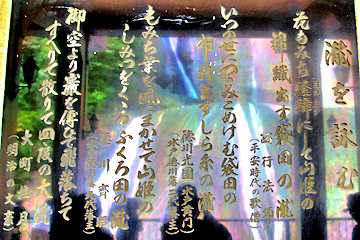 瀧を詠む
花もみち経緯にして山姫の
錦織出す袋田の瀧
西行法師
(平安時代の歌僧)
いつの世につつみこめけむ袋田の
布引出すしら糸の瀧
徳川光圀
(水戸黄門)
もみち葉を風にまかせて山姫の
しみつをくゝるふくろ田の瀧
徳川斉昭
御空より巌を傳ひて飛落ちて
すべりて散りて四段の大瀧
大町桂月
(明治の文豪)